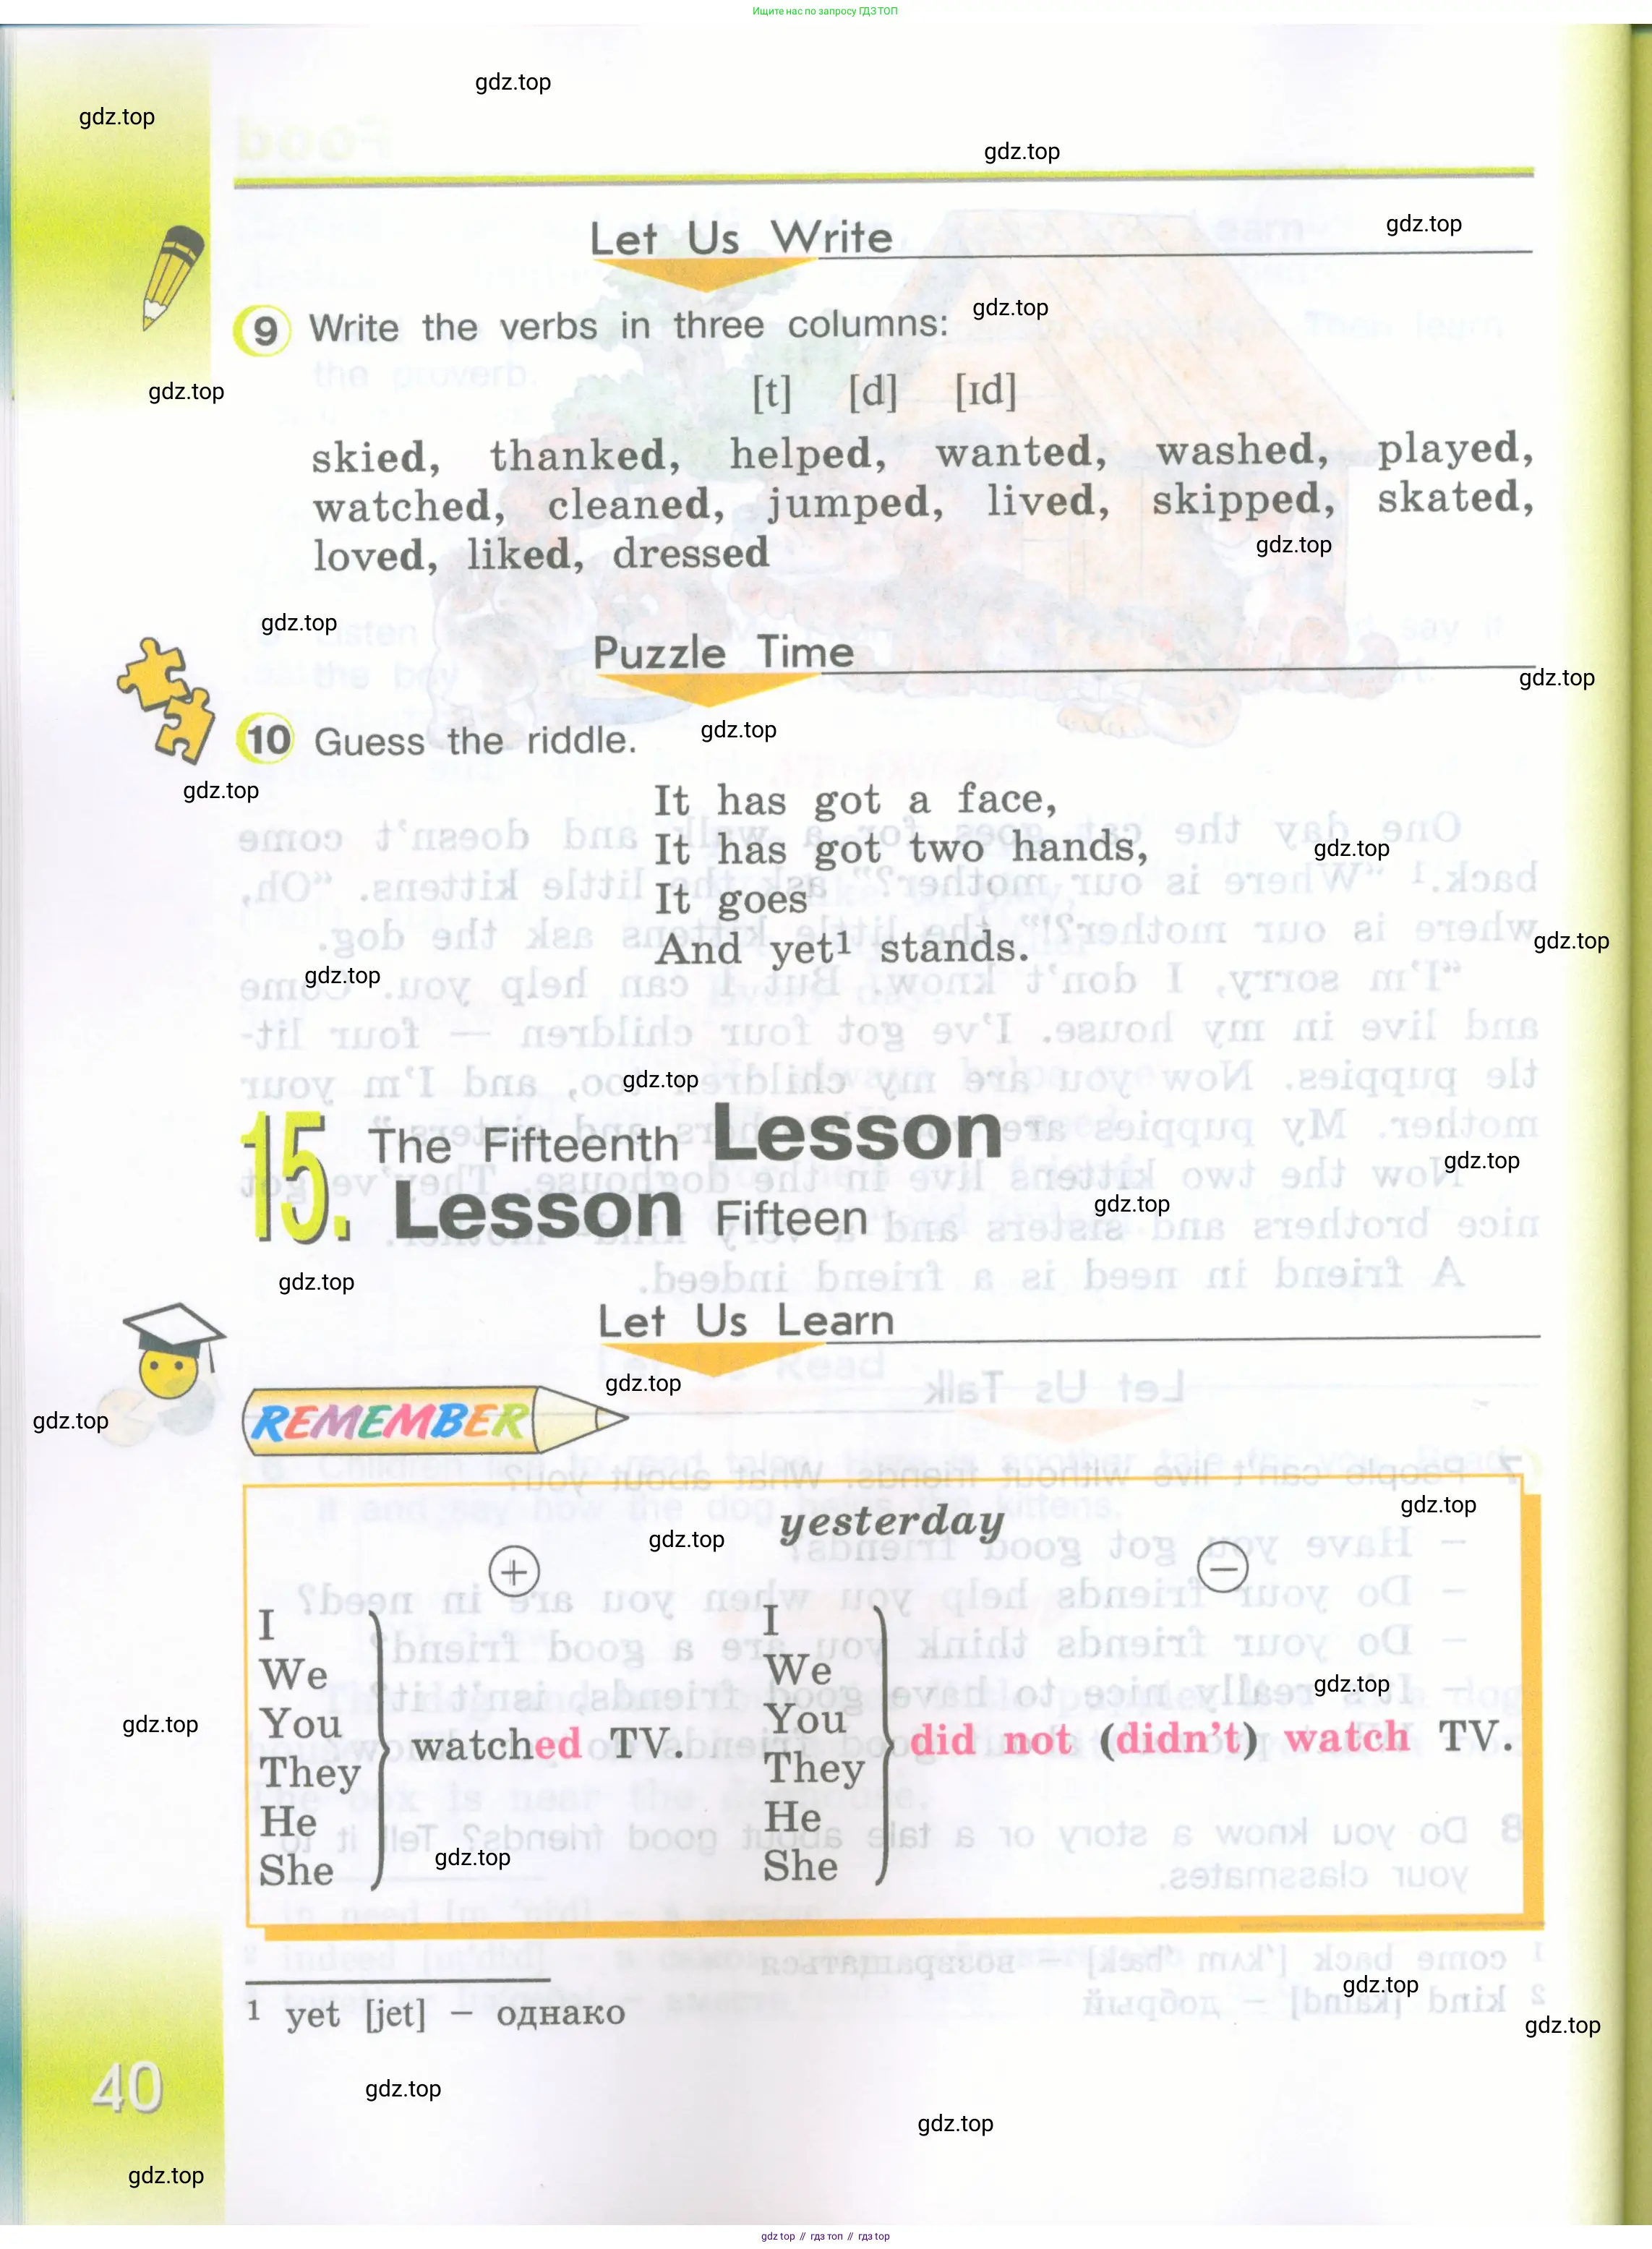 Ищите нас по запросу ГДЗ ТОП
gdz.top
gdz.top
gdz.top
gdz.top
Let Us Write
gdz.top
9 Write the verbs in three columns:
gdz.top
[t] [d] [ɪd]
skied, thanked, helped, wanted, washed, played,
watched, cleaned, jumped, lived, skipped, skated,
loved, liked, dressed
gdz.top
gdz.top
Puzzle Time
gdz.top
10 Guess the riddle.
gdz.top
gdz.top
It has got a face,
It has got two hands,
gdz.top
It goes
And yet¹ stands.
gdz.top
gdz.top
gdz.top
15. The Fifteenth Lesson
Lesson Fifteen
gdz.top
gdz.top
gdz.top
Let Us Learn
gdz.top
gdz.top
REMEMBER
yesterday
gdz.top
gdz.top
+ −
I I
We We
You You
They They
He He
She She
watched TV. did not (didn't) watch TV.
gdz.top
gdz.top
gdz.top
gdz.top
1 yet [jet] – однако
gdz.top
40
gdz.top
gdz.top
gdz.top
gdz.top // гдз топ // гдз top